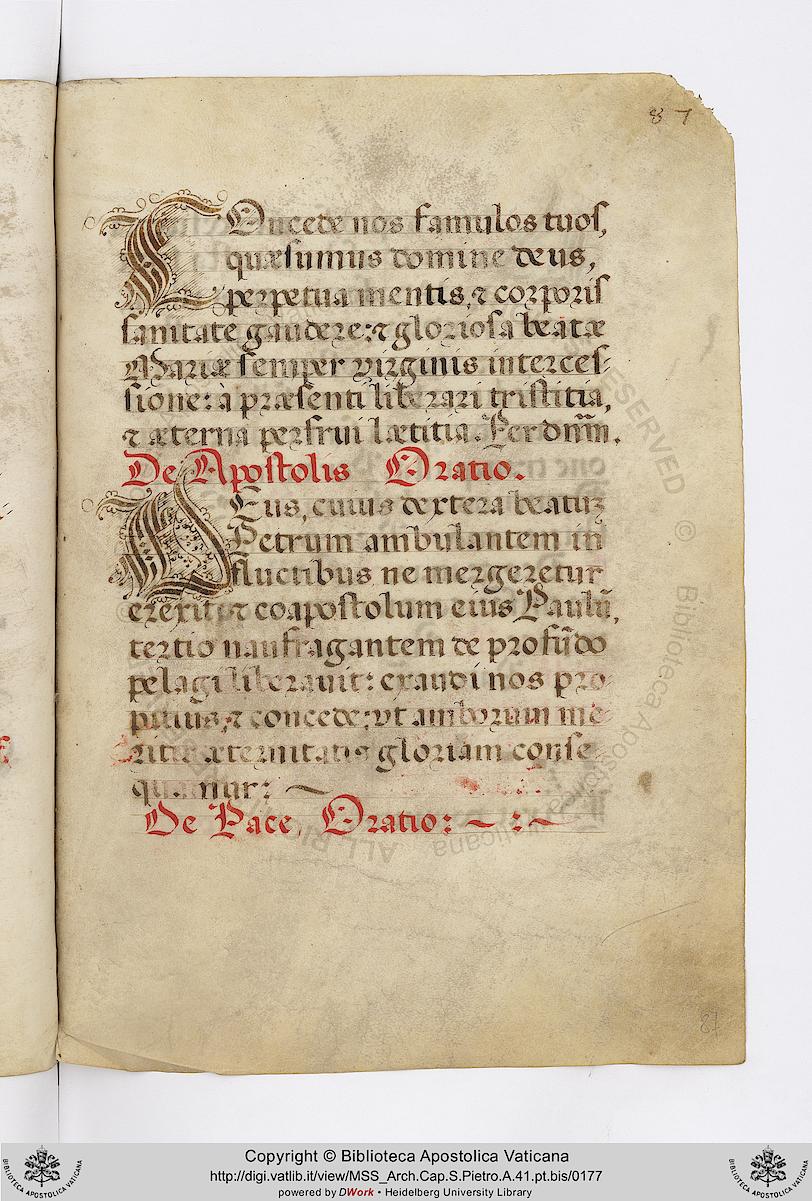 87
COncede nos famulos tuos,
quæsumus domine deus,
perpetua mentis, & corporis
sanitate gaudere: & gloriosa beatæ
Mariæ semper virginis interces-
sione: à præsenti liberari tristitia,
& æterna perfrui lætitia. Per dñm.
De Apostolis Oratio.
DEus, cuius dextera beatũ
Petrum ambulantem in
fluctibus, ne mergeretur
erexit, & coapostolum eius Paulũ,
tertio naufragantem de profũdo
pelagi liberauit: exaudi nos pro-
pitius, & concede, vt amborum me-
ritis æternitatis gloriam conse-
quamur: ~
De Pace, Oratio: ~ : ~
87
ALL RIGHTS RESERVED © Biblioteca Apostolica Vaticana
Copyright © Biblioteca Apostolica Vaticana
http://digi.vatlib.it/view/MSS_Arch.Cap.S.Pietro.A.41.pt.bis/0177
powered by DWork • Heidelberg University Library
BIBLIOTECA APOSTOLICA VATICANA
BIBLIOTECA APOSTOLICA VATICANA